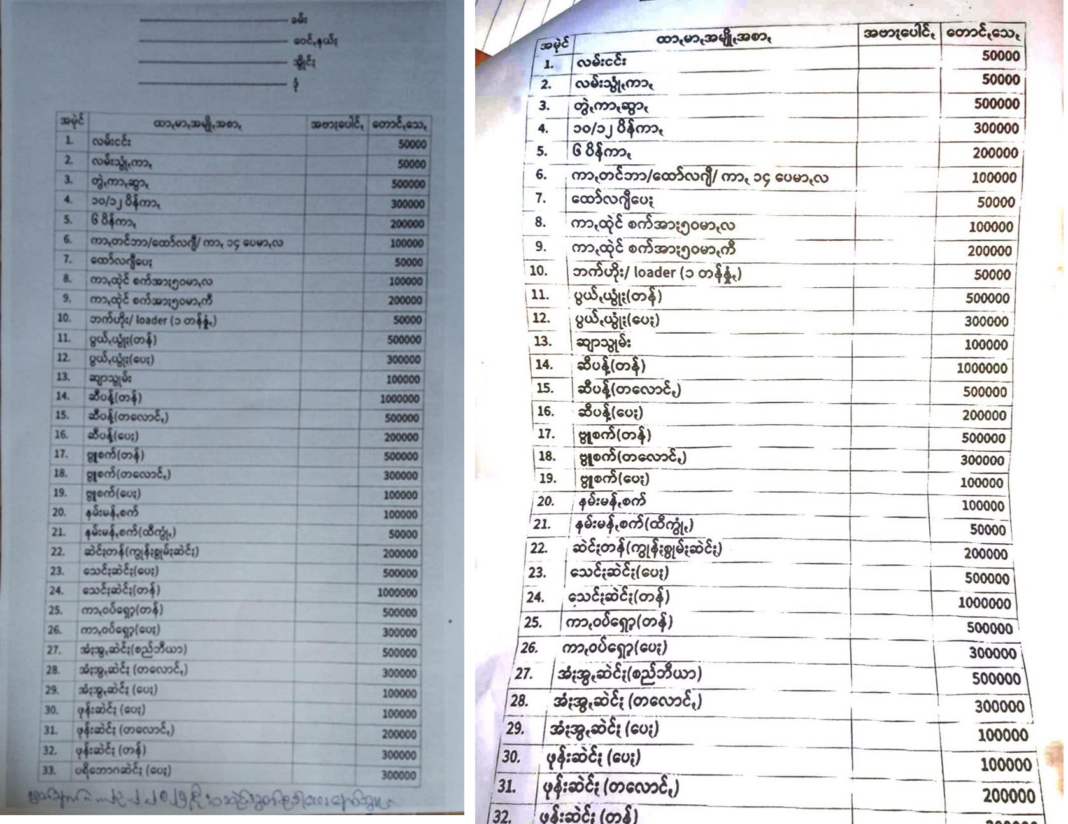 ခမ်း
ဝေင်ႇနယ်ႈ
အိူင်ႈ
ၸုံ
အမှဲင် ထာႇမာႇအမျိုႇအစာႇ အဗာႏပေါင်ႇ တောင်ႇသေႇ
1. လမ်းငင်း 50000
2. လမ်းသွုံႇကာႇ 50000
3. တွဲႇကာႇဆွာႇ 500000
4. ၁၀/၁၂ ပိန်ကာႇ 300000
5. ၆ ပိန်ကာႇ 200000
6. ကာႇတင်ဘာ/ထော်လဂျီ/ ကာႇ ၁၄ ပေမာႇလ 100000
7. ထော်လဂျီပေႏ 50000
8. ကာႇထုဲင် စက်အာႏ၅၀မာႇလ 100000
9. ကာႇထုဲင် စက်အာႏ၅၀မာႇကီ 200000
10. ဘက်ဟိုး/ loader (၁ တန်ၐွံႇ) 50000
11. ပွယ်ႇယျွုံႏ(တန်) 500000
12. ပွယ်ႇယျွုံႏ(ပေႏ) 300000
13. ဆျာသွုမ်း 100000
14. ဆီပန်ႇ(တန်) 1000000
15. ဆီပန်ႇ(တလောင်ႇ) 500000
16. ဆီပန်ႇ(ပေႏ) 200000
17. ဗွူစက်(တန်) 500000
18. ဗွူစက်(တလောင်ႇ) 300000
19. ဗွူစက်(ပေႏ) 100000
20. နမ်းမန်ႇစက် 100000
21. နမ်းမန်ႇစက်(ထီကွုံႇ) 50000
22. ဆဲင်ႏတန်(ကျွန်ႏစွုမ်ႏဆဲင်ႏ) 200000
23. သေင်ႏဆဲင်ႏ(ပေႏ) 500000
24. သေင်ႏဆဲင်ႏ(တန်) 1000000
25. ကာႇဝပ်ရှော့(တန်) 500000
26. ကာႇဝပ်ရှော့(ပေႏ) 300000
27. အံႏအွႇဆဲင်ႏ(စည်ဘီယာ) 500000
28. အံႏအွႇဆဲင်ႏ (တလောင်ႇ) 300000
29. အံႏအွႇဆဲင်ႏ (ပေႏ) 100000
30. ဖုန်းဆဲင်ႏ (ပေႏ) 100000
31. ဖုန်းဆဲင်ႏ (တလောင်ႇ) 200000
32. ဖုန်းဆဲင်ႏ (တန်) 300000
33. ပရိဘောဂဆဲင်ႏ (ပေႏ) 300000
အမှဲင် ထာႇမာႇအမျိုႇအစာႇ အဗာႏပေါင်ႇ တောင်ႇသေႇ
1. လမ်းငင်း 50000
2. လမ်းသွုံႇကာႇ 50000
3. တွဲႇကာႇဆွာႇ 500000
4. ၁၀/၁၂ ပိန်ကာႇ 300000
5. ၆ ပိန်ကာႇ 200000
6. ကာႇတင်ဘာ/ထော်လဂျီ/ ကာႇ ၁၄ ပေမာႇလ 100000
7. ထော်လဂျီပေႏ 50000
8. ကာႇထုဲင် စက်အာႏ၅၀မာႇလ 100000
9. ကာႇထုဲင် စက်အာႏ၅၀မာႇကီ 200000
10. ဘက်ဟိုး/ loader (၁ တန်ၐွံႇ) 50000
11. ပွယ်ႇယျွုံႏ(တန်) 500000
12. ပွယ်ႇယျွုံႏ(ပေႏ) 300000
13. ဆျာသွုမ်း 100000
14. ဆီပန်ႇ(တန်) 1000000
15. ဆီပန်ႇ(တလောင်ႇ) 500000
16. ဆီပန်ႇ(ပေႏ) 200000
17. ဗွူစက်(တန်) 500000
18. ဗွူစက်(တလောင်ႇ) 300000
19. ဗွူစက်(ပေႏ) 100000
20. နမ်းမန်ႇစက် 100000
21. နမ်းမန်ႇစက်(ထီကွုံႇ) 50000
22. ဆဲင်ႏတန်(ကျွန်ႏစွုမ်ႏဆဲင်ႏ) 200000
23. သေင်ႏဆဲင်ႏ(ပေႏ) 500000
24. သေင်ႏဆဲင်ႏ(တန်) 1000000
25. ကာႇဝပ်ရှော့(တန်) 500000
26. ကာႇဝပ်ရှော့(ပေႏ) 300000
27. အံႏအွႇဆဲင်ႏ(စည်ဘီယာ) 500000
28. အံႏအွႇဆဲင်ႏ (တလောင်ႇ) 300000
29. အံႏအွႇဆဲင်ႏ (ပေႏ) 100000
30. ဖုန်းဆဲင်ႏ (ပေႏ) 100000
31. ဖုန်းဆဲင်ႏ (တလောင်ႇ) 200000
32. ဖုန်းဆဲင်ႏ (တန်)